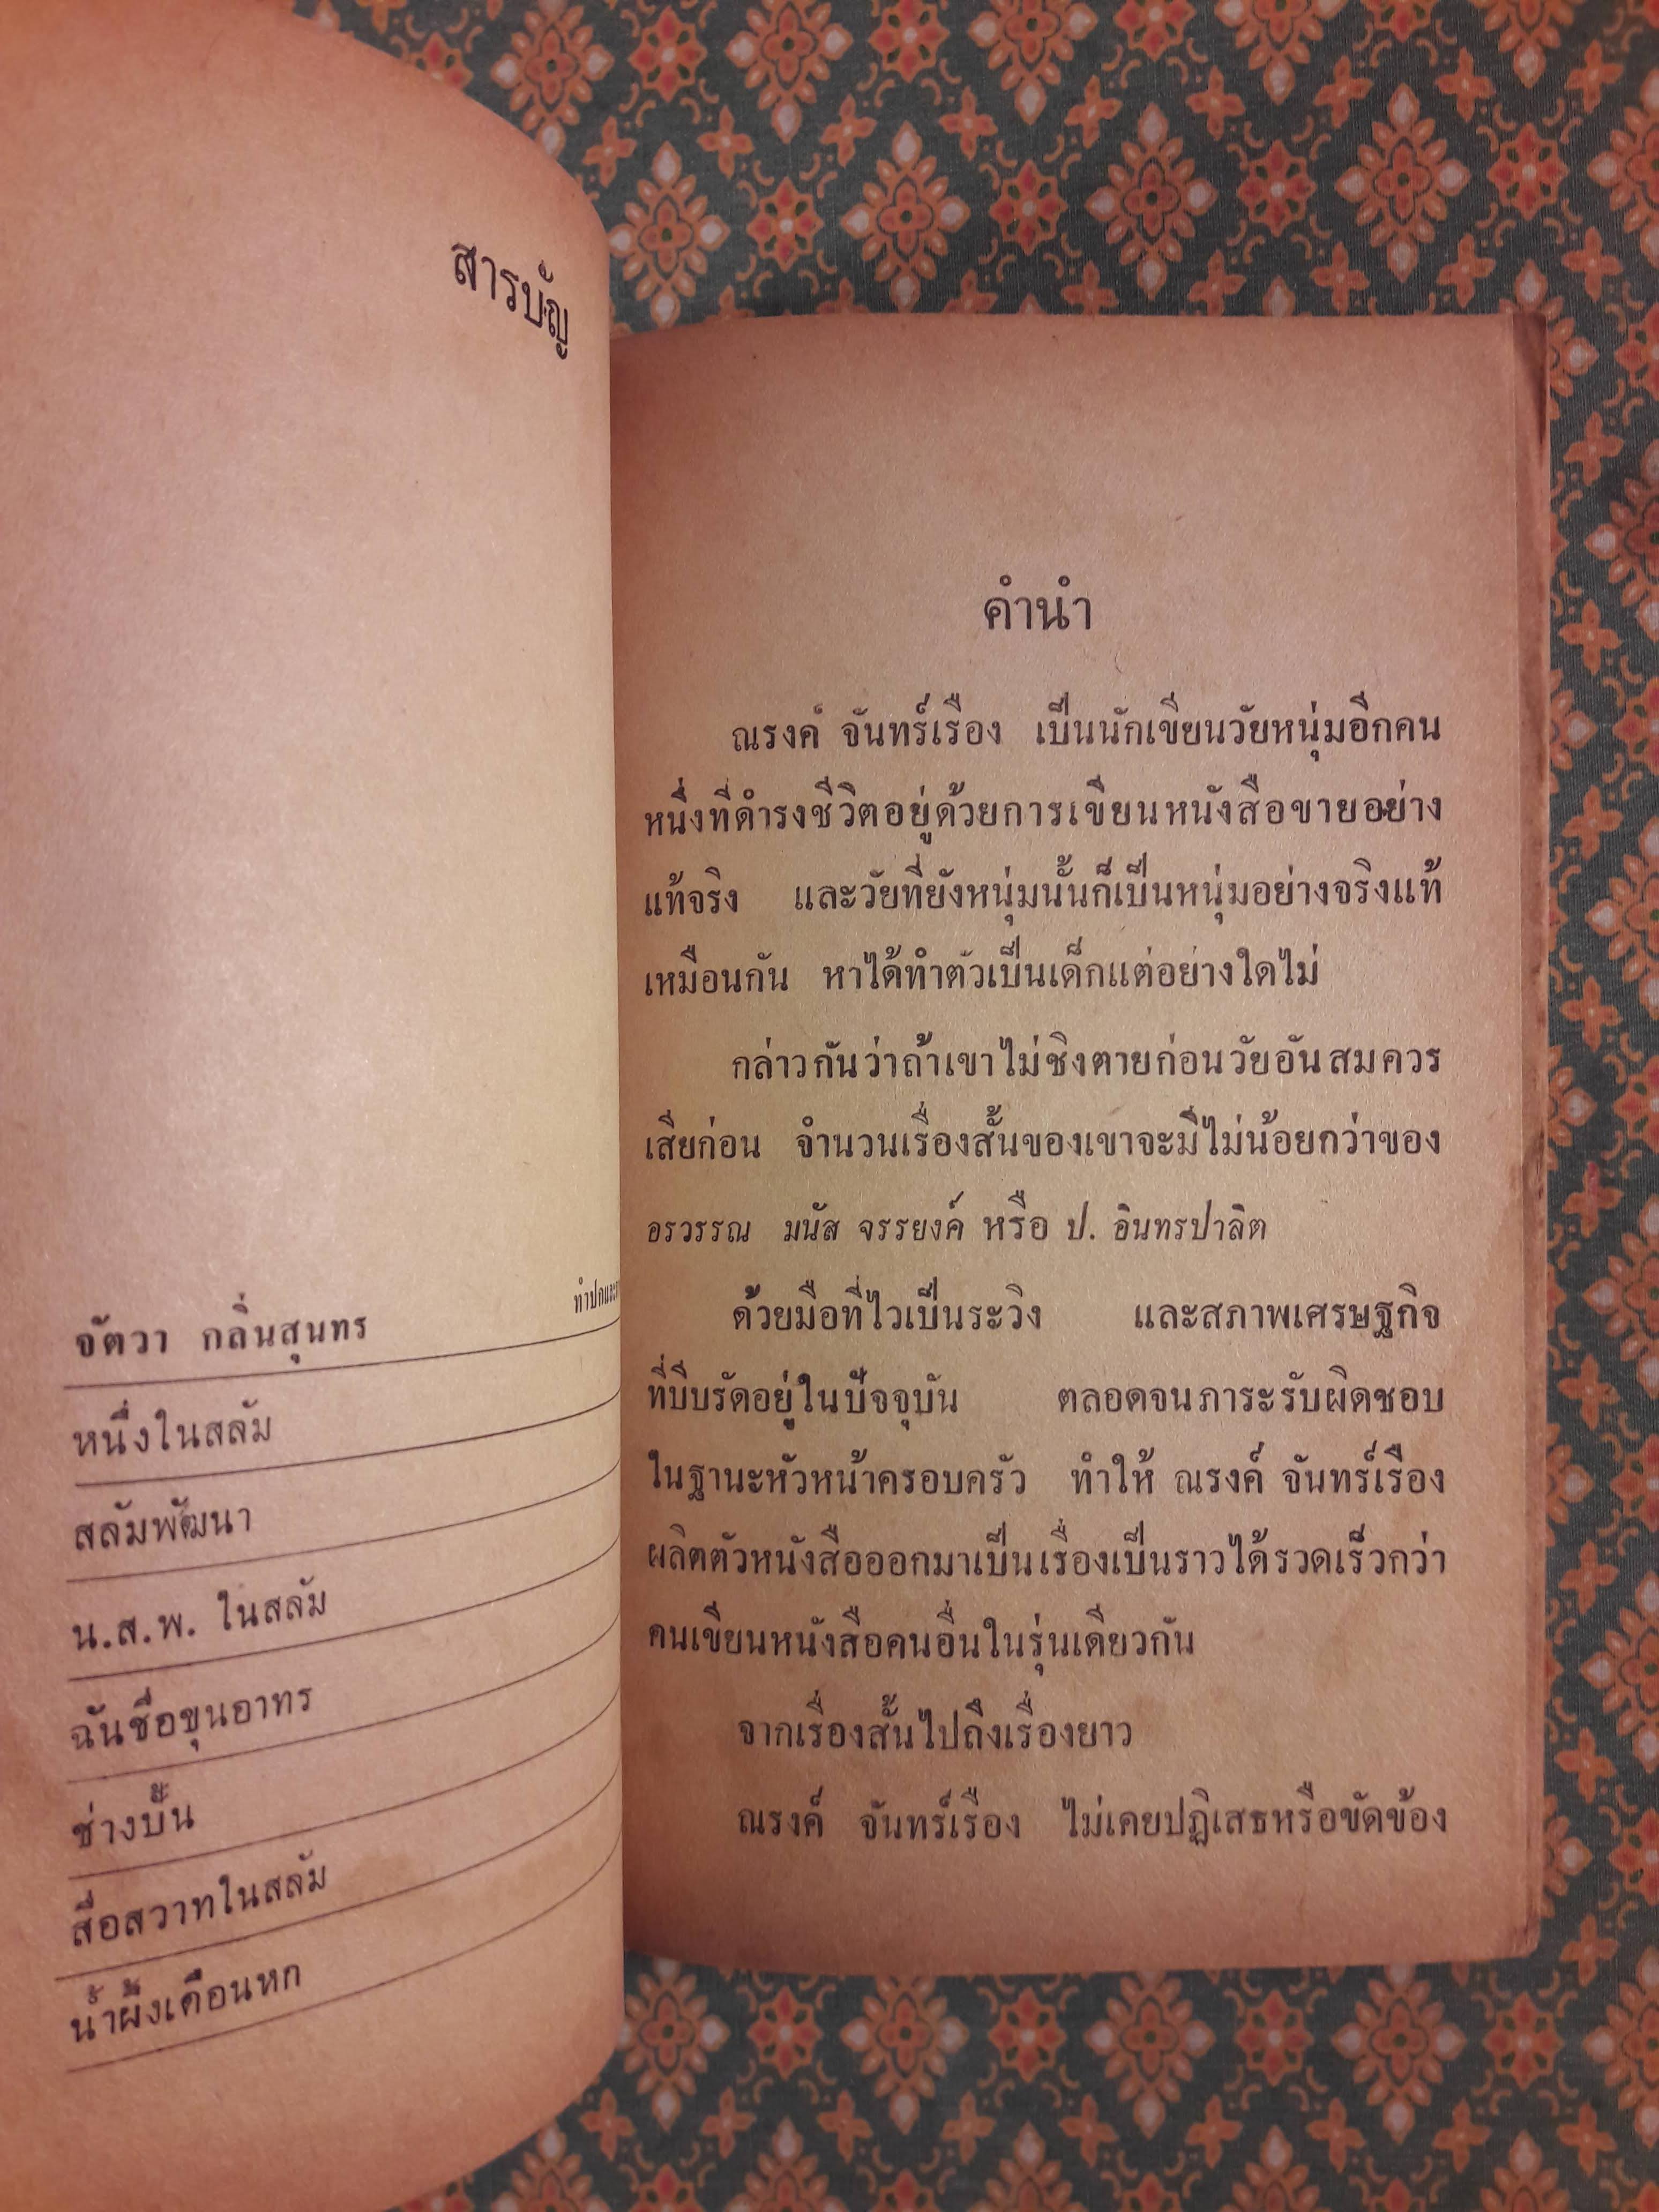 สารบัญ
จัตวา กลิ่นสุนทร
ทำปกและ
หนึ่งในสลัม
สลัมพัฒนา
น.ส.พ. ในสลัม
ฉันชื่อขุนอาทร
ช่างปั้น
สื่อสวาทในสลัม
น้ำผึ้งเดือนหก
คำนำ
ณรงค์ จันทร์เรือง เป็นนักเขียนวัยหนุ่มอีกคน
หนึ่งที่ดำรงชีวิตอยู่ด้วยการเขียนหนังสือขายอย่าง
แท้จริง และวัยที่ยังหนุ่มนั้นก็เป็นหนุ่มอย่างจริงแท้
เหมือนกัน หาได้ทำตัวเป็นเด็กแต่อย่างใดไม่
กล่าวกันว่าถ้าเขาไม่ชิงตายก่อนวัยอันสมควร
เสียก่อน จำนวนเรื่องสั้นของเขาจะมีไม่น้อยกว่าของ
อรวรรณ มนัส จรรยงค์ หรือ ป. อินทรปาลิต
ด้วยมือที่ไวเป็นระวิง และสภาพเศรษฐกิจ
ที่บีบรัดอยู่ในปัจจุบัน ตลอดจนภาระรับผิดชอบ
ในฐานะหัวหน้าครอบครัว ทำให้ ณรงค์ จันทร์เรือง
ผลิตตัวหนังสือออกมาเป็นเรื่องเป็นราวได้รวดเร็วกว่า
คนเขียนหนังสือคนอื่นในรุ่นเดียวกัน
จากเรื่องสั้นไปถึงเรื่องยาว
ณรงค์ จันทร์เรือง ไม่เคยปฏิเสธหรือขัดข้อง